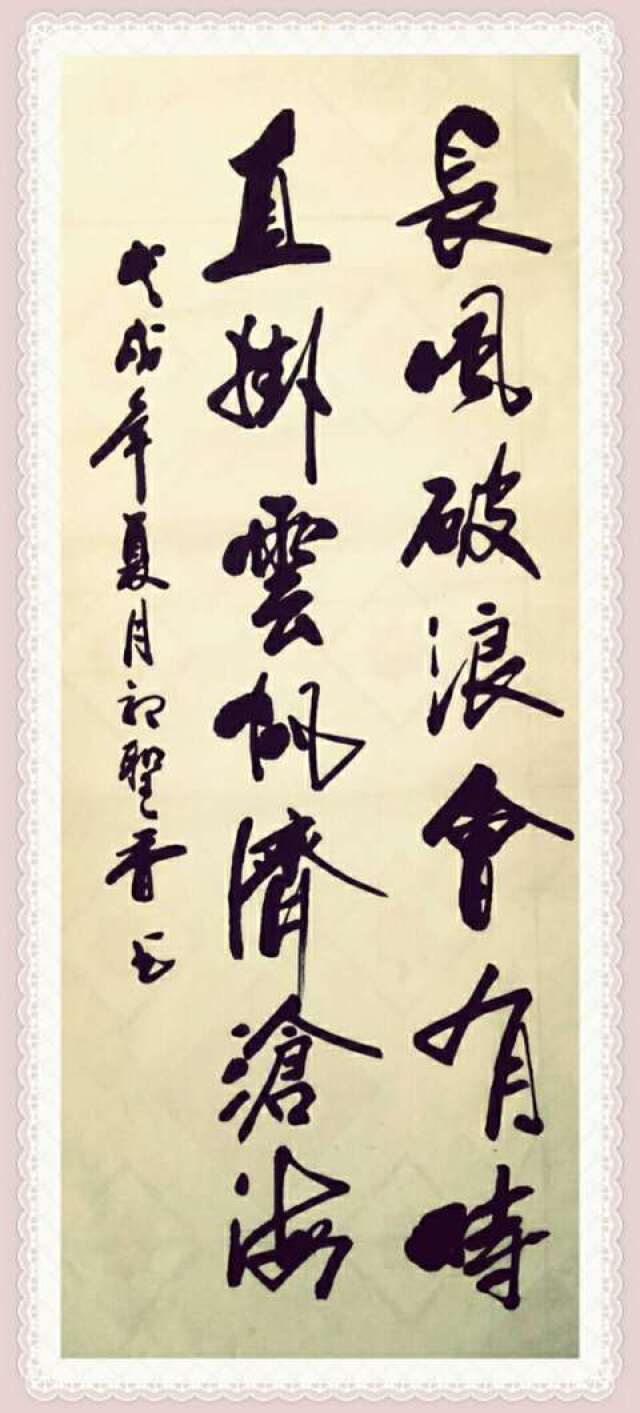 長風破浪會有時
直掛雲帆濟滄海
戊戌年夏月祁聖香書